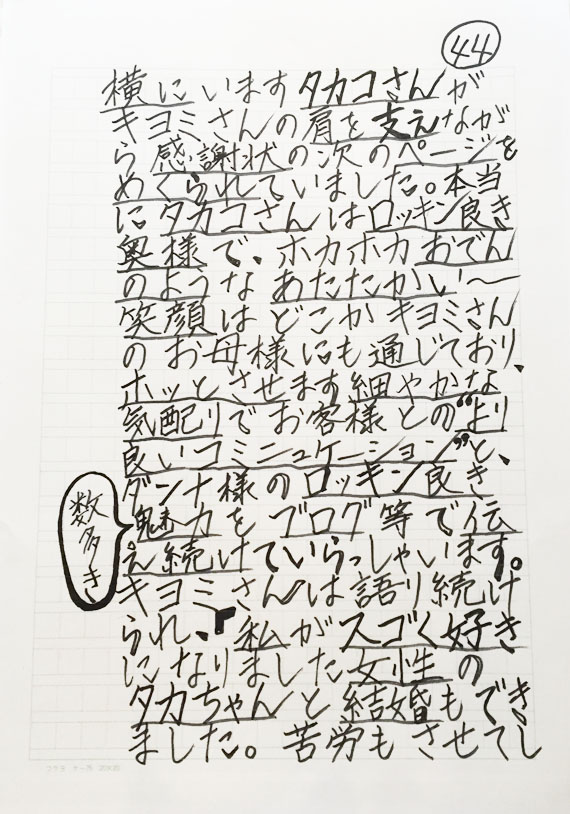 44
横にいますタカコさんが
キヨミさんの肩を支えなが
ら 感謝状の次のページを
めくられていました。本当
にタカコさんはロッキン良き
奥様で、ホカホカおでん
のような あたたかい〜
笑顔は どこかキヨミさん
の お母様にも通じており、
ホッとさせます細やかな
気配りで お客様との“より
良いコミニュケーション”と、
ダンナ様のロッキン良き
数多き
魅力を ブログ等で伝
え続けていらっしゃいます。
キヨミさんは語り続け
られ、「私がスゴく好き
になりました女性の
タカちゃんと結婚もでき
ました。苦労もさせてし
コクヨ ケー75 20×20